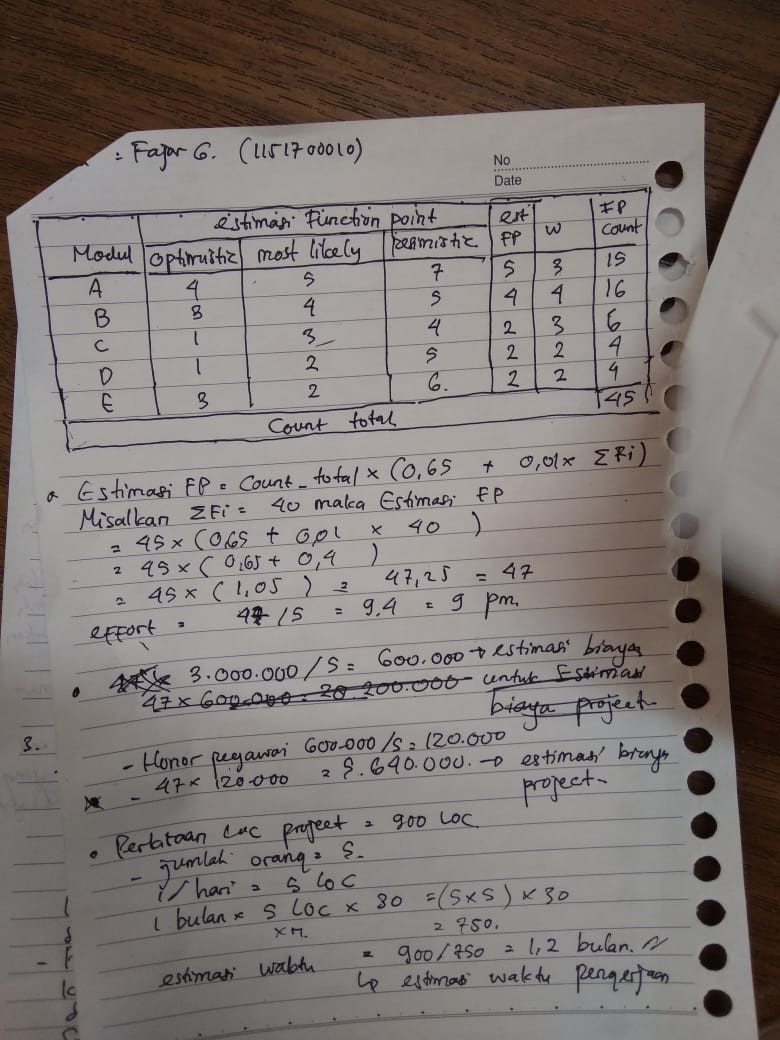 : Fajar G. (1151700010)
No
Date
Modul | estimasi Function point | est FP | W | FP Count
optimistic | most likely | pesimistic
A 4 5 7 5 3 15
B 3 4 5 4 4 16
C 1 3 4 2 3 6
D 1 2 5 2 2 4
E 3 2 6. 2 2 4
Count total 45
a Estimasi FP = Count_total x (0,65 + 0,01x ΣFi)
Misalkan ΣFi = 40 maka Estimasi FP
= 45 x (0,65 + 0,01 x 40 )
= 45 x ( 0,65 + 0,4 )
= 45 x ( 1,05 ) = 47,25 = 47
effort = 47 / 5 = 9.4 = 9 pm.
• 3.000.000 / 5 = 600.000 → estimasi biaya
47 x 600.000 = 28.200.000 untuk Estimasi
biaya project
3.
- Honor pegawai 600.000 /5 = 120.000
- 47 x 120.000 = 5.640.000. → estimasi biaya
project-
• LOC project = 900 LOC
- jumlah orang = 5.
1/hari = 5 LOC
1 bulan = 5 LOC x 30 = (5x5) x 30
= 750.
estimasi waktu = 900/750 = 1,2 bulan.
↳ estimasi waktu pengerjaan